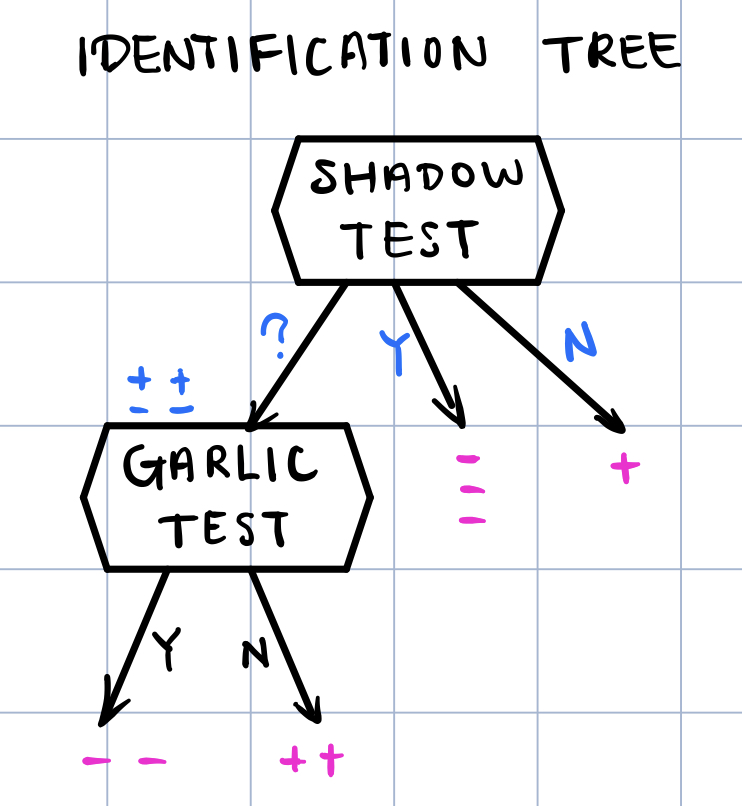 IDENTIFICATION TREE
SHADOW
TEST
? Y N
+ +
- -
GARLIC
TEST
-
-
-
+
Y N
- - ++